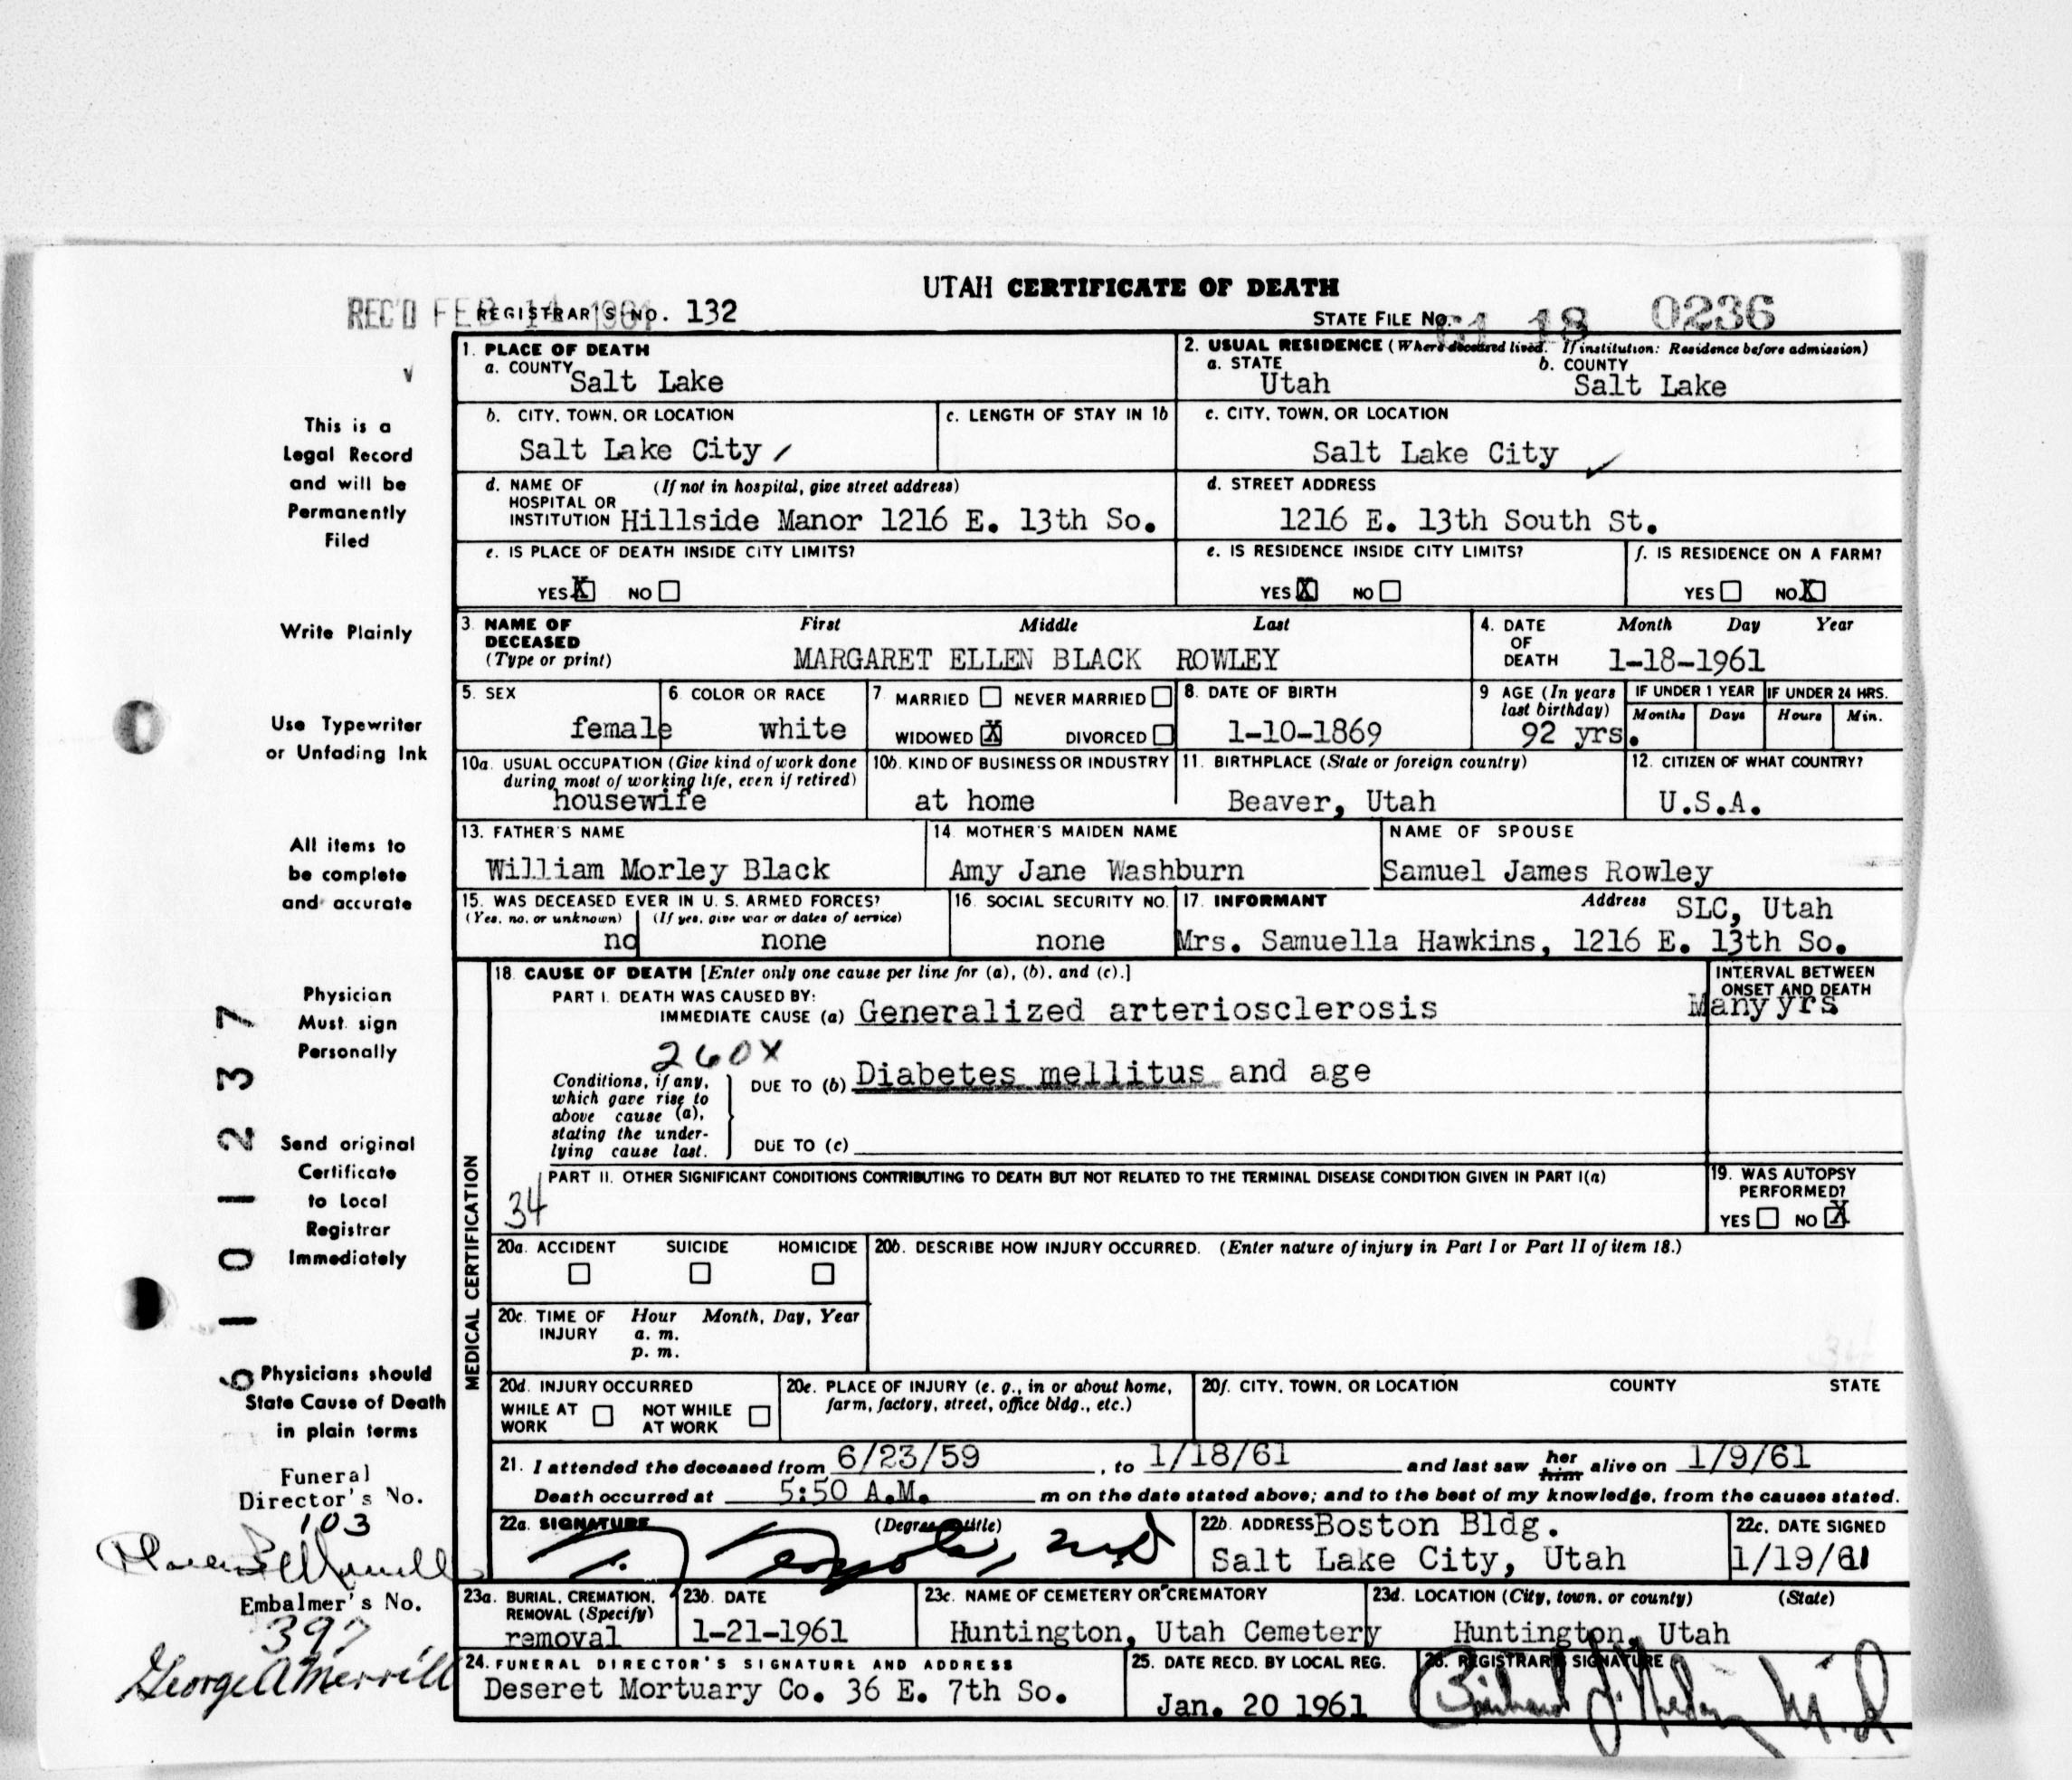 UTAH CERTIFICATE OF DEATH
REC'D FEB 14 1961 REGISTRAR'S NO. 132
STATE FILE No. 61 18 0236
1. PLACE OF DEATH
a. COUNTY Salt Lake
2. USUAL RESIDENCE (Where deceased lived. If institution: Residence before admission)
a. STATE Utah b. COUNTY Salt Lake
b. CITY, TOWN, OR LOCATION Salt Lake City
c. LENGTH OF STAY IN 1b
c. CITY, TOWN, OR LOCATION Salt Lake City
d. NAME OF HOSPITAL OR INSTITUTION (If not in hospital, give street address) Hillside Manor 1216 E. 13th So.
d. STREET ADDRESS 1216 E. 13th South St.
e. IS PLACE OF DEATH INSIDE CITY LIMITS?
YES X NO
e. IS RESIDENCE INSIDE CITY LIMITS?
YES X NO
f. IS RESIDENCE ON A FARM?
YES NO X
3. NAME OF DECEASED (Type or print)
First Middle Last
MARGARET ELLEN BLACK ROWLEY
4. DATE OF DEATH Month Day Year
1-18-1961
5. SEX female
6. COLOR OR RACE white
7. MARRIED NEVER MARRIED
WIDOWED X DIVORCED
8. DATE OF BIRTH 1-10-1869
9 AGE (In years last birthday) 92 yrs.
IF UNDER 1 YEAR IF UNDER 24 HRS.
Months Days Hours Min.
10a. USUAL OCCUPATION (Give kind of work done during most of working life, even if retired) housewife
10b. KIND OF BUSINESS OR INDUSTRY at home
11. BIRTHPLACE (State or foreign country) Beaver, Utah
12. CITIZEN OF WHAT COUNTRY? U.S.A.
13. FATHER'S NAME William Morley Black
14. MOTHER'S MAIDEN NAME Amy Jane Washburn
NAME OF SPOUSE Samuel James Rowley
15. WAS DECEASED EVER IN U. S. ARMED FORCES?
(Yes, no, or unknown) (If yes, give war or dates of service)
no none
16. SOCIAL SECURITY NO. none
17. INFORMANT Address SLC, Utah
Mrs. Samuella Hawkins, 1216 E. 13th So.
MEDICAL CERTIFICATION
18. CAUSE OF DEATH [Enter only one cause per line for (a), (b), and (c).]
PART I. DEATH WAS CAUSED BY:
IMMEDIATE CAUSE (a) Generalized arteriosclerosis
INTERVAL BETWEEN ONSET AND DEATH
Many yrs
260X
Conditions, if any, which gave rise to above cause (a), stating the underlying cause last.
DUE TO (b) Diabetes mellitus and age
DUE TO (c)
PART II. OTHER SIGNIFICANT CONDITIONS CONTRIBUTING TO DEATH BUT NOT RELATED TO THE TERMINAL DISEASE CONDITION GIVEN IN PART I(a)
34
19. WAS AUTOPSY PERFORMED?
YES NO X
20a. ACCIDENT SUICIDE HOMICIDE
20b. DESCRIBE HOW INJURY OCCURRED. (Enter nature of injury in Part I or Part II of item 18.)
20c. TIME OF INJURY Hour Month, Day, Year
a. m.
p. m.
20d. INJURY OCCURRED
WHILE AT WORK NOT WHILE AT WORK
20e. PLACE OF INJURY (e. g., in or about home, farm, factory, street, office bldg., etc.)
20f. CITY, TOWN, OR LOCATION COUNTY STATE
21. I attended the deceased from 6/23/59, to 1/18/61 and last saw her him alive on 1/9/61
Death occurred at 5:50 A.M. m on the date stated above; and to the best of my knowledge, from the causes stated.
22a. SIGNATURE (Degree or title)
22b. ADDRESS Boston Bldg.
Salt Lake City, Utah
22c. DATE SIGNED
1/19/61
23a. BURIAL, CREMATION, REMOVAL (Specify) removal
23b. DATE 1-21-1961
23c. NAME OF CEMETERY OR CREMATORY Huntington, Utah Cemetery
23d. LOCATION (City, town, or county) (State)
Huntington, Utah
24. FUNERAL DIRECTOR'S SIGNATURE AND ADDRESS
Deseret Mortuary Co. 36 E. 7th So.
25. DATE RECD. BY LOCAL REG.
Jan. 20 1961
26. REGISTRAR'S SIGNATURE
This is a
Legal Record
and will be
Permanently
Filed
Write Plainly
Use Typewriter
or Unfading Ink
All items to
be complete
and accurate
Physician
Must sign
Personally
Send original
Certificate
to Local
Registrar
Immediately
Physicians should
State Cause of Death
in plain terms
Funeral
Director's No.
103
Embalmer's No.
397
George A Merrill
6 1 0 1 2 3 7